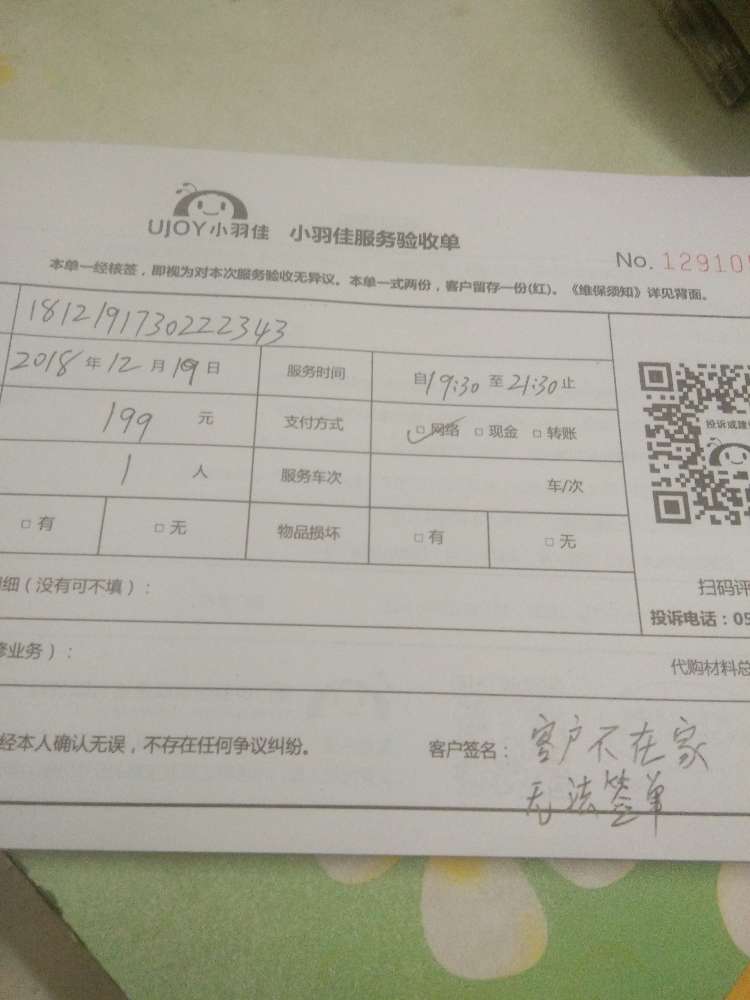 UJOY小羽佳 小羽佳服务验收单
No. 12910
本单一经核签，即视为对本次服务验收无异议。本单一式两份，客户留存一份(红)。《维保须知》详见背面。
1812191730222343
2018年12月19日 服务时间 自19:30至21:30止
199 元 支付方式 □ 网络 □ 现金 □ 转账
1 人 服务车次 车/次
□ 有 □ 无 物品损坏 □ 有 □ 无
投诉或建
细（没有可不填）：
扫码评
投诉电话：05
修业务）：
代购材料总
经本人确认无误，不存在任何争议纠纷。 客户签名：客户不在家
无法签单